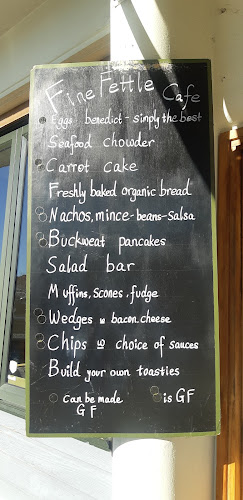 Fine Fettle Cafe
Eggs - benedict - simply the best
Seafood chowder
Carrot cake
Freshly baked organic bread
Nachos, mince-beans-salsa
Buckweat pancakes
Salad bar
Muffins, Scones, fudge
Wedges w bacon, cheese
Chips w choice of sauces
Build your own toasties
can be made
GF
is GF